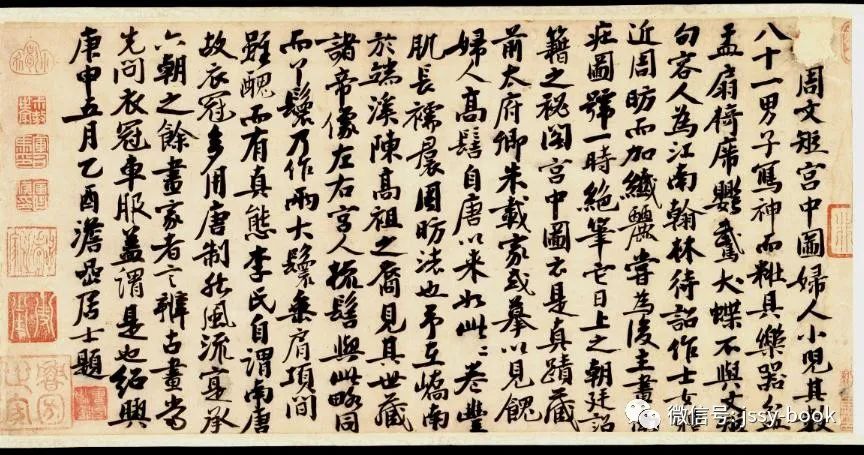 周文矩宮中圖婦人小兒其數
八十一男子寫神而粧具樂器盆
盂扇椅席鸚鵡犬蝶不與文矩
句容人為江南翰林待詔作士女體
近周昉而加纖麗嘗為後主畫南
莊圖號一時絕筆它日上之朝廷詔
籍之祕閣宮中圖云是真蹟藏
前太府卿朱載家或摹以見餽
婦人高髻自唐以來如此此卷豐
肌長襦裠周昉法也予在嶠南
於端溪陳高祖之裔見其世藏
諸帝像左右宮人梳髻與此略同
而丫鬟乃作兩大鬟垂肩項間
雖醜而有真態李氏自謂南唐
故衣冠多用唐制然風流寔承
六朝之餘畫家者言辨古畫當
先問衣冠車服蓋謂是也紹興
庚申五月乙酉澹嵒居士題
微信号: jssy-book